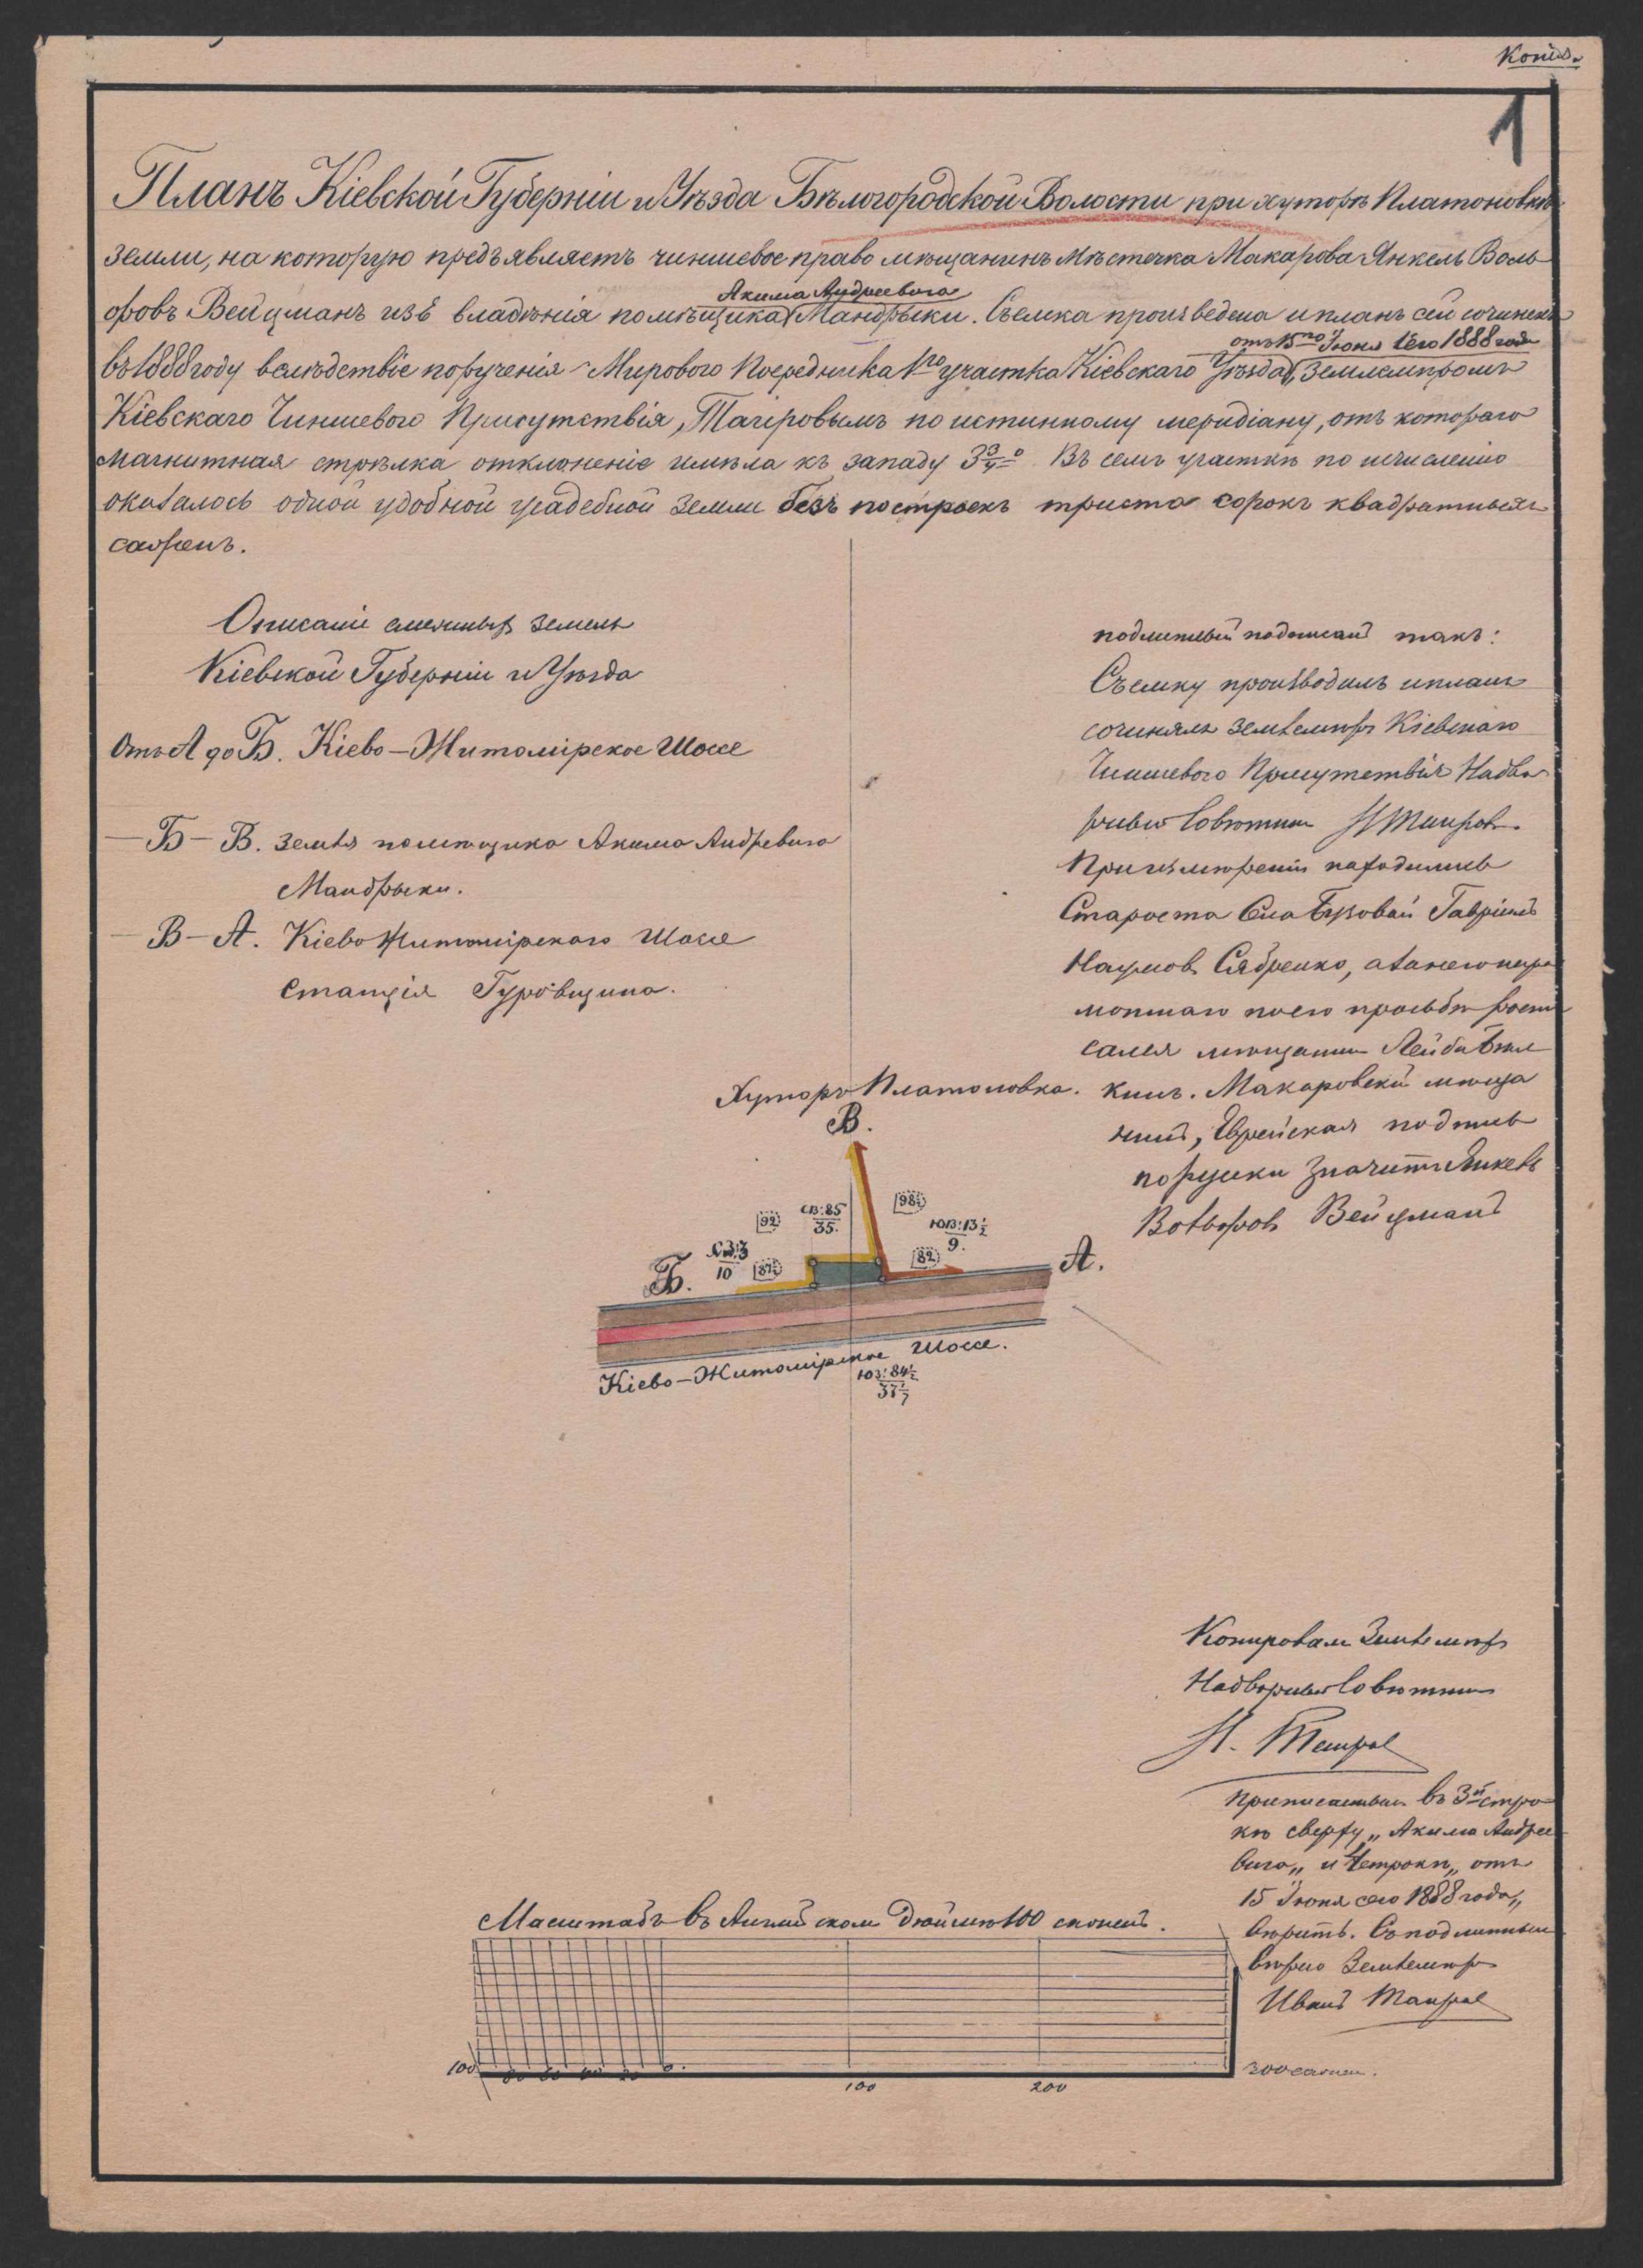 Копія.
1
Планъ Кіевской Губерніи и Уѣзда Бѣлогородской Волости при хуторѣ Платоновкѣ
земли, на которую предъявляетъ чиншевое право мѣщанинъ Мѣстечка Макарова Янкель Воль
фовъ Вейцманъ изъ владѣнія помѣщика Акима Андреевого Мандрыки. Съемка произведена и планъ сей сочиненъ
въ 1888 году вслѣдствіе порученія Мирового Посредника 1го участка Кіевскаго Уѣзда отъ 15го Іюня сего 1888 года, Землемѣромъ
Кіевскаго Чиншевого Присутствія, Таировымъ по истинному меридіану, отъ котораго
магнитная стрѣлка отклоненіе имѣла къ западу 3¾°. Въ семъ участкѣ по исчисленію
оказалось одной удобной усадебной земли безъ построекъ триста сорокъ квадратныхъ
сажень.
Описаніе смежныхъ земель
Кіевской Губерніи и Уѣзда
Отъ А до Б. Кіево-Житомірское Шоссе
— Б — В. Земля помѣщика Акима Андреевича
Мандрыки.
— В — А. Кіево Житомірскаго Шоссе
Станція Гуровщина.
подлинный подписалъ такъ:
Съемку производилъ и планъ
сочинялъ Землемѣръ Кіевскаго
Чиншевого Присутствія Надво
рный Совѣтникъ И Таировъ
При измѣреніи находились
Староста Села Бузовой Гавріилъ
Наумовъ Сябренко, а за него негра
мотнаго по его просьбѣ роспи
сался мѣщанинъ Лейба
кинъ. Макаровскій мѣща
нинъ, Еврейская подпись
по русски значитъ Янкель
Вольфовъ Вейцманъ
Хуторъ Платоновка.
В.
92
СВ:85
35.
98½
ЮВ:13½
9.
СЗ:3
10
87½
82
Б.
А.
Кіево-Житомірское Шоссе.
ЮЗ:84½
37½
Копировалъ Землемѣръ
Надворный Совѣтникъ
И. Таировъ
Приписанныя въ 3й стро
кѣ сверху „Акима Андрее
вича„ и 4 строкѣ „отъ
15 Іюня сего 1888 года„
вѣрить. Съ подлиннымъ
вѣрно Землемѣръ
Иванъ Таировъ
Масштабъ въ Англійскомъ Дюймѣ 100 саженъ.
100 80 60 40 20 0.
100 200
300 сажен.